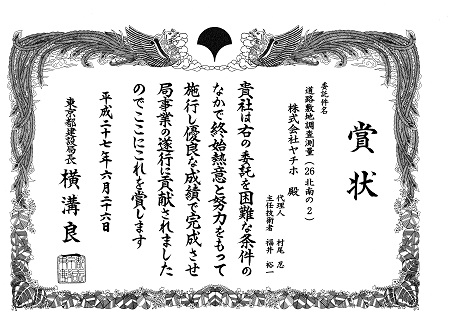 賞状
委託件名
道路敷地調査測量（26北南の2）
株式会社ヤチホ 殿
代理人 村尾 忍
主任技術者 福井 裕一
貴社は右の委託を困難な条件の
なかで終始熱意と努力をもって
施行し優良な成績で完成させ
局事業の遂行に貢献されました
のでここにこれを賞します
平成二十七年六月二十六日
東京都建設局長 横溝良一